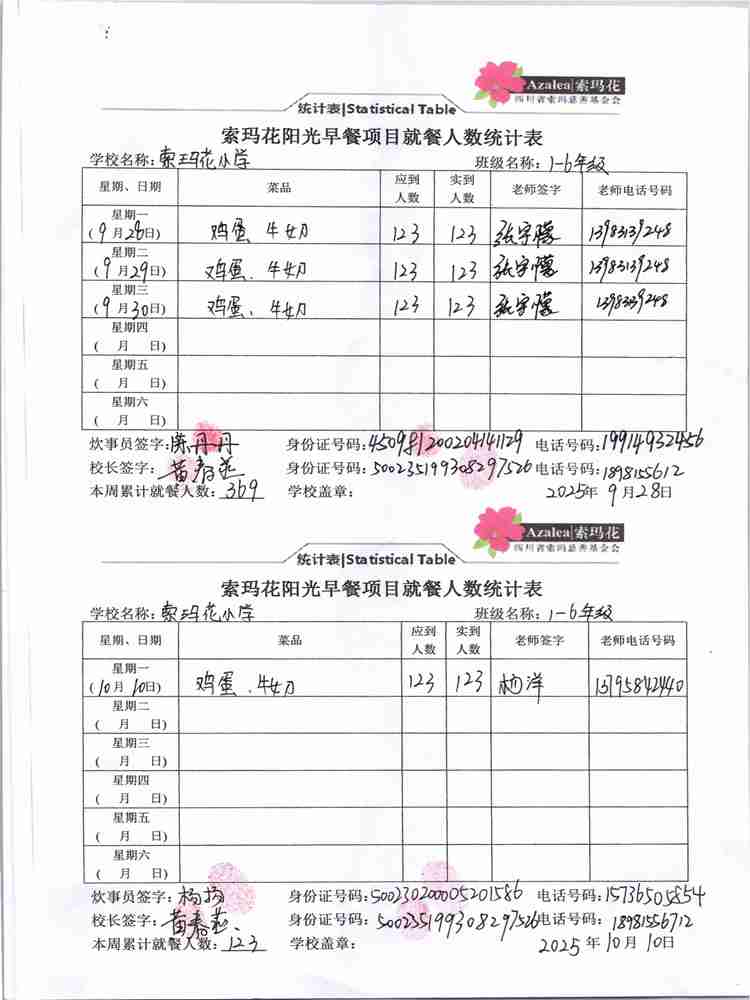 Azalea|索玛花
四川省索玛慈善基金会
统计表|Statistical Table
索玛花阳光早餐项目就餐人数统计表
学校名称:索玛花小学 班级名称:1-6年级
星期、日期 菜品 应到人数 实到人数 老师签字 老师电话号码
星期一 (9月28日) 鸡蛋、牛奶 123 123 张宇朦 13983139248
星期二 (9月29日) 鸡蛋、牛奶 123 123 张宇朦 13983139248
星期三 (9月30日) 鸡蛋、牛奶 123 123 张宇朦 13983139248
星期四 ( 月 日)
星期五 ( 月 日)
星期六 ( 月 日)
炊事员签字:陈丹丹 身份证号码: 电话号码:19914932456
校长签字:黄春 身份证号码:500235199308297526 电话号码:1898155612
本周累计就餐人数:369 学校盖章: 2025年9月28日
Azalea|索玛花
四川省索玛慈善基金会
统计表|Statistical Table
索玛花阳光早餐项目就餐人数统计表
学校名称:索玛花小学 班级名称:1-6年级
星期、日期 菜品 应到人数 实到人数 老师签字 老师电话号码
星期一 (10月10日) 鸡蛋、牛奶 123 123 杨洋 15795842440
星期二 ( 月 日)
星期三 ( 月 日)
星期四 ( 月 日)
星期五 ( 月 日)
星期六 ( 月 日)
炊事员签字:杨扬 身份证号码:500230200005201586 电话号码:15736505854
校长签字:黄春 身份证号码:500235199308297526 电话号码:18981556712
本周累计就餐人数:123 学校盖章: 2025年10月10日